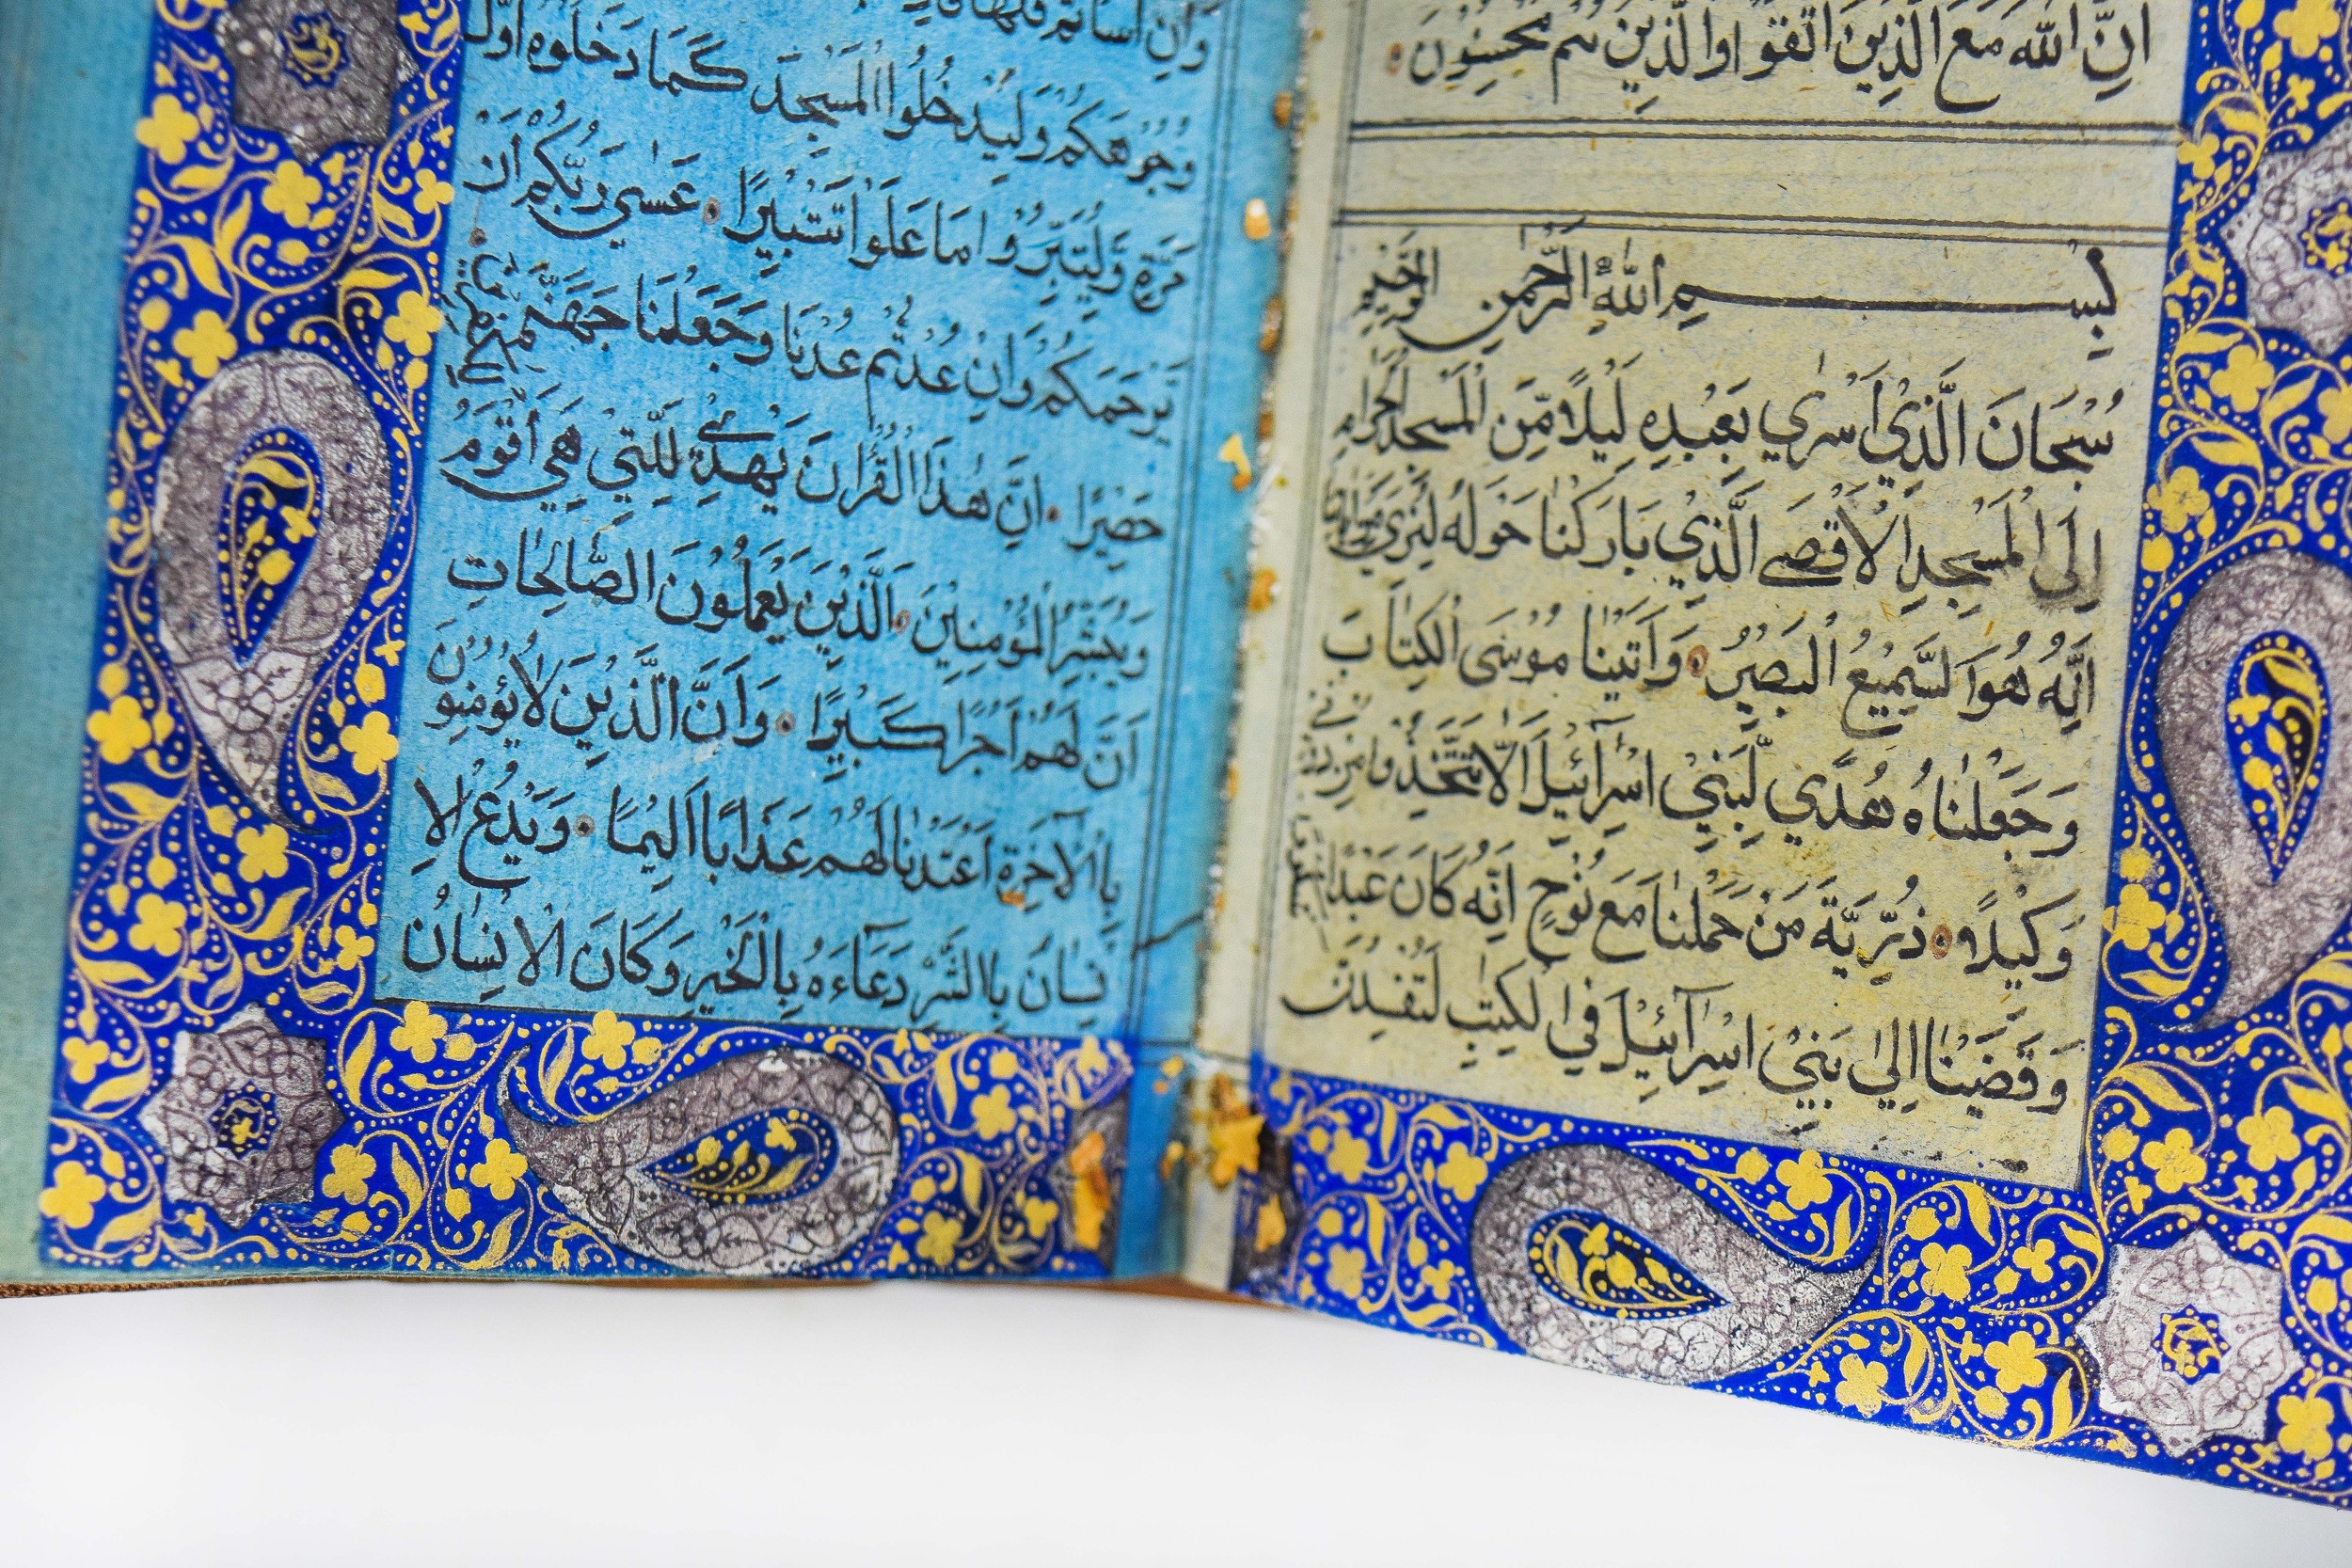 اِنَّ اللّٰهَ مَعَ الَّذِيْنَ اتَّقَوْا وَالَّذِيْنَ هُمْ مُحْسِنُوْنَ
بِسْمِ اللّٰهِ الرَّحْمٰنِ الرَّحِيْمِ
سُبْحَانَ الَّذِيْ اَسْرٰي بِعَبْدِهٖ لَيْلًا مِّنَ الْمَسْجِدِ الْحَرَامِ
اِلَي الْمَسْجِدِ الْاَقْصَي الَّذِيْ بَارَكْنَا حَوْلَهٗ لِنُرِيَهٗ مِنْ اٰيَاتِنَا
اِنَّهٗ هُوَ السَّمِيْعُ الْبَصِيْرُ وَاٰتَيْنَا مُوْسَي الْكِتَابَ
وَجَعَلْنَاهُ هُدًي لِّبَنِيْ اِسْرَآئِيْلَ اَلَّا تَتَّخِذُوْا مِنْ دُوْنِيْ
وَكِيْلًا ذُرِّيَّةَ مَنْ حَمَلْنَا مَعَ نُوْحٍ اِنَّهٗ كَانَ عَبْدًا شَكُوْرًا
وَقَضَيْنَا اِلٰي بَنِيْ اِسْرَآئِيْلَ فِي الْكِتٰبِ لَتُفْسِدُنَّ
وَاِنْ اَسَاْتُمْ فَلَهَا
وُجُوْهَكُمْ وَلِيَدْخُلُوا الْمَسْجِدَ كَمَا دَخَلُوْهُ اَوَّلَ
مَرَّةٍ وَّلِيُتَبِّرُوْا مَا عَلَوْا تَتْبِيْرًا عَسٰي رَبُّكُمْ اَنْ
يَّرْحَمَكُمْ وَاِنْ عُدْتُّمْ عُدْنَا وَجَعَلْنَا جَهَنَّمَ لِلْكٰفِرِيْنَ
حَصِيْرًا اِنَّ هٰذَا الْقُرْاٰنَ يَهْدِيْ لِلَّتِيْ هِيَ اَقْوَمُ
وَيُبَشِّرُ الْمُؤْمِنِيْنَ الَّذِيْنَ يَعْمَلُوْنَ الصَّالِحَاتِ
اَنَّ لَهُمْ اَجْرًا كَبِيْرًا وَاَنَّ الَّذِيْنَ لَا يُؤْمِنُوْنَ
بِالْاٰخِرَةِ اَعْتَدْنَا لَهُمْ عَذَابًا اَلِيْمًا وَيَدْعُ الْاِ
نْسَانُ بِالشَّرِّ دُعَآءَهٗ بِالْخَيْرِ وَكَانَ الْاِنْسَانُ